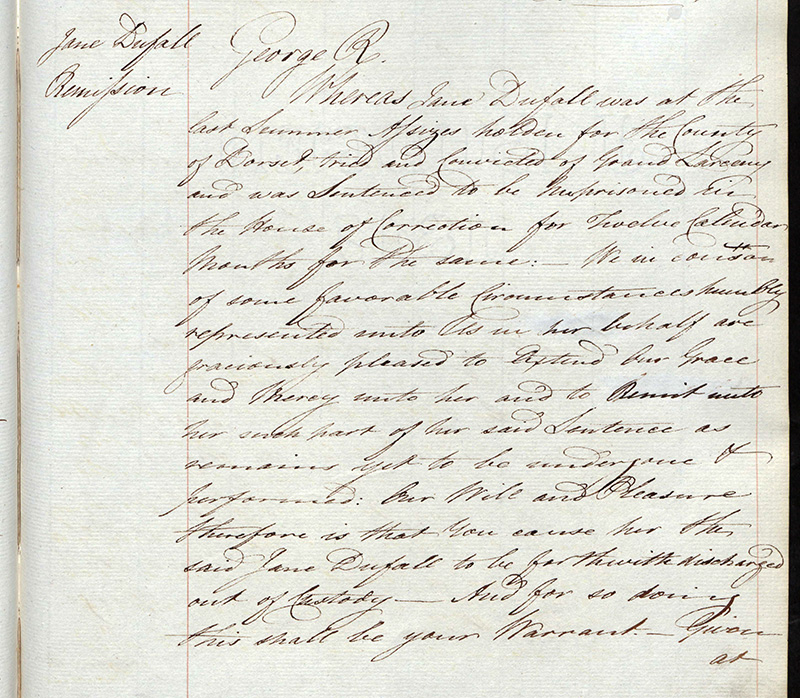 Jane Dufall
Remission
George R.
Whereas Jane Dufall was at the
last Summer Assizes holden for the County
of Dorset, tried and Convicted of Grand Larceny
and was Sentenced to be Imprisoned in
the House of Correction for Twelve Calendar
Months for the same: — We in conson
of some favorable Circumstances humbly
represented unto Us in her behalf are
graciously pleased to Extend Our Grace
and Mercy unto her and to Remit unto
her such part of her said Sentence as
remains yet to be undergone &
performed: Our Will and Pleasure
therefore is that You cause her the
said Jane Dufall to be forthwith discharged
out of Custody — And for so doing
this shall be your Warrant. — Given
at